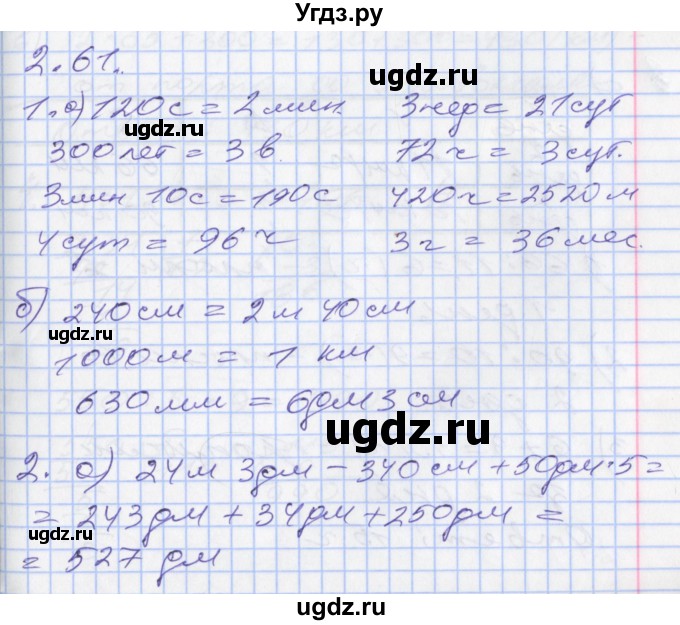 Угдз.ру
2.61.
ugdz.ru
1. а) 120 с = 2 мин. 3 нед = 21 сут
ugdz.ru
300 лет = 3 в. 72 ч = 3 сут.
3 мин 10 с = 190 с 420 ч = 2520 м
4 сут = 96 ч 3 г = 36 мес.
б) 240 см = 2 м 40 см
ugdz.ru
1000 м = 1 км
630 мм = 6 дм 3 см
ugdz.ru
2. а) 24 м 3 дм - 340 см + 50 дм · 5 =
= 243 дм + 34 дм + 250 дм =
ugdz.ru
= 527 дм
ugdz.ru